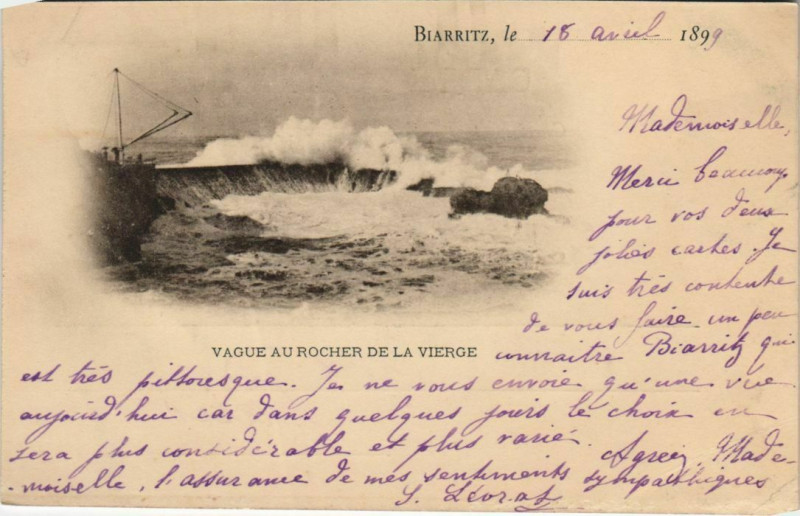 BIARRITZ, le 18 avril 1899
Mademoiselle,
Merci beaucoup
pour vos deux
jolies cartes. Je
suis très contente
de vous faire un peu
VAGUE AU ROCHER DE LA VIERGE
connaître Biarritz qui
est très pittoresque. Je ne vous envoie qu'une vue
aujourd'hui car dans quelques jours le choix en
sera plus considérable et plus varié.
Agréez, Made-
-moiselle, l'assurance de mes sentiments sympathiques
S.